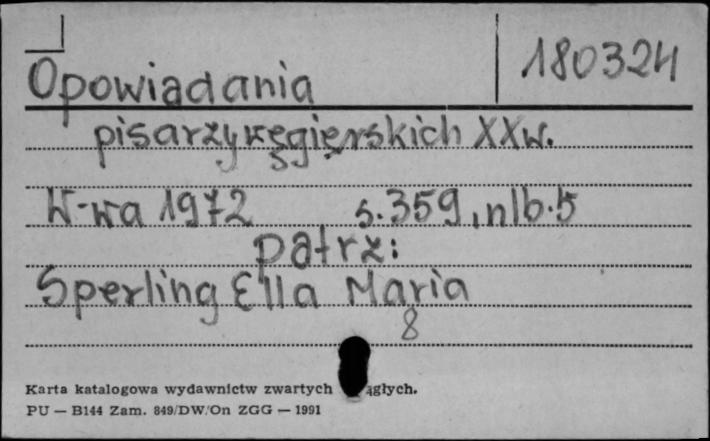 180324
Opowiadania
pisarzy węgierskich XX w.
W-wa 1972 s. 359, nlb. 5
patrz:
Sperling Ella Maria
8
Karta katalogowa wydawnictw zwartych ągłych.
PU — B144 Zam. 849/DW/On ZGG — 1991